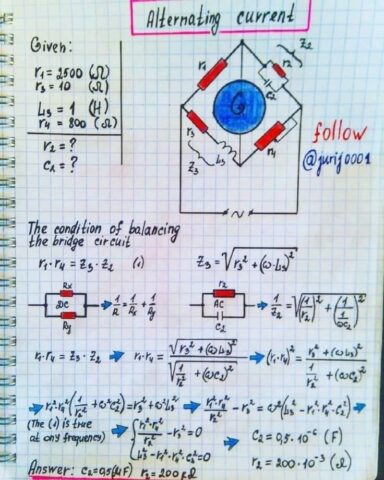 Alternating current
Given:
r₁ = 2500 (Ω)
r₃ = 10 (Ω)
L₃ = 1 (H)
r₄ = 800 (Ω)
r₂ = ?
C₂ = ?
r₁
Z₂
r₂
C₂
G
r₃
L₃
Z₃
r₄
~
follow
@jurij0001
The condition of balancing
the bridge circuit
r₁·r₄ = Z₃·Z₂ (1)
Z₃ = √(r₃² + (ω·L₃)²)
Rx
DC
Ry
1/R = 1/Rx + 1/Ry
r₂
AC
C₂
1/Z₂ = √((1/r₂)² + (1/(1/ωC₂))²)
r₁·r₄ = Z₃·Z₂ → r₁·r₄ = √(r₃² + (ωL₃)²) / √(1/r₂² + (ωC₂)²) → (r₁·r₄)² = (r₃² + (ωL₃)²) / (1/r₂² + (ωC₂)²)
→ r₁²·r₄²(1/r₂² + ω²C₂²) = r₃² + ω²L₃² → r₁²·r₄²/r₂² - r₃² = ω²(L₃² - r₁²·r₄²·C₂²) →
(The (1) is true
at any frequency)
{ r₁²·r₄²/r₂² - r₃² = 0
L₃² - r₁²·r₄²·C₂² = 0
→ C₂ = 0,5·10⁻⁶ (F)
r₂ = 200·10⁻³ (Ω)
Answer: C₂ = 0,5(μF) r₂ = 200 kΩ